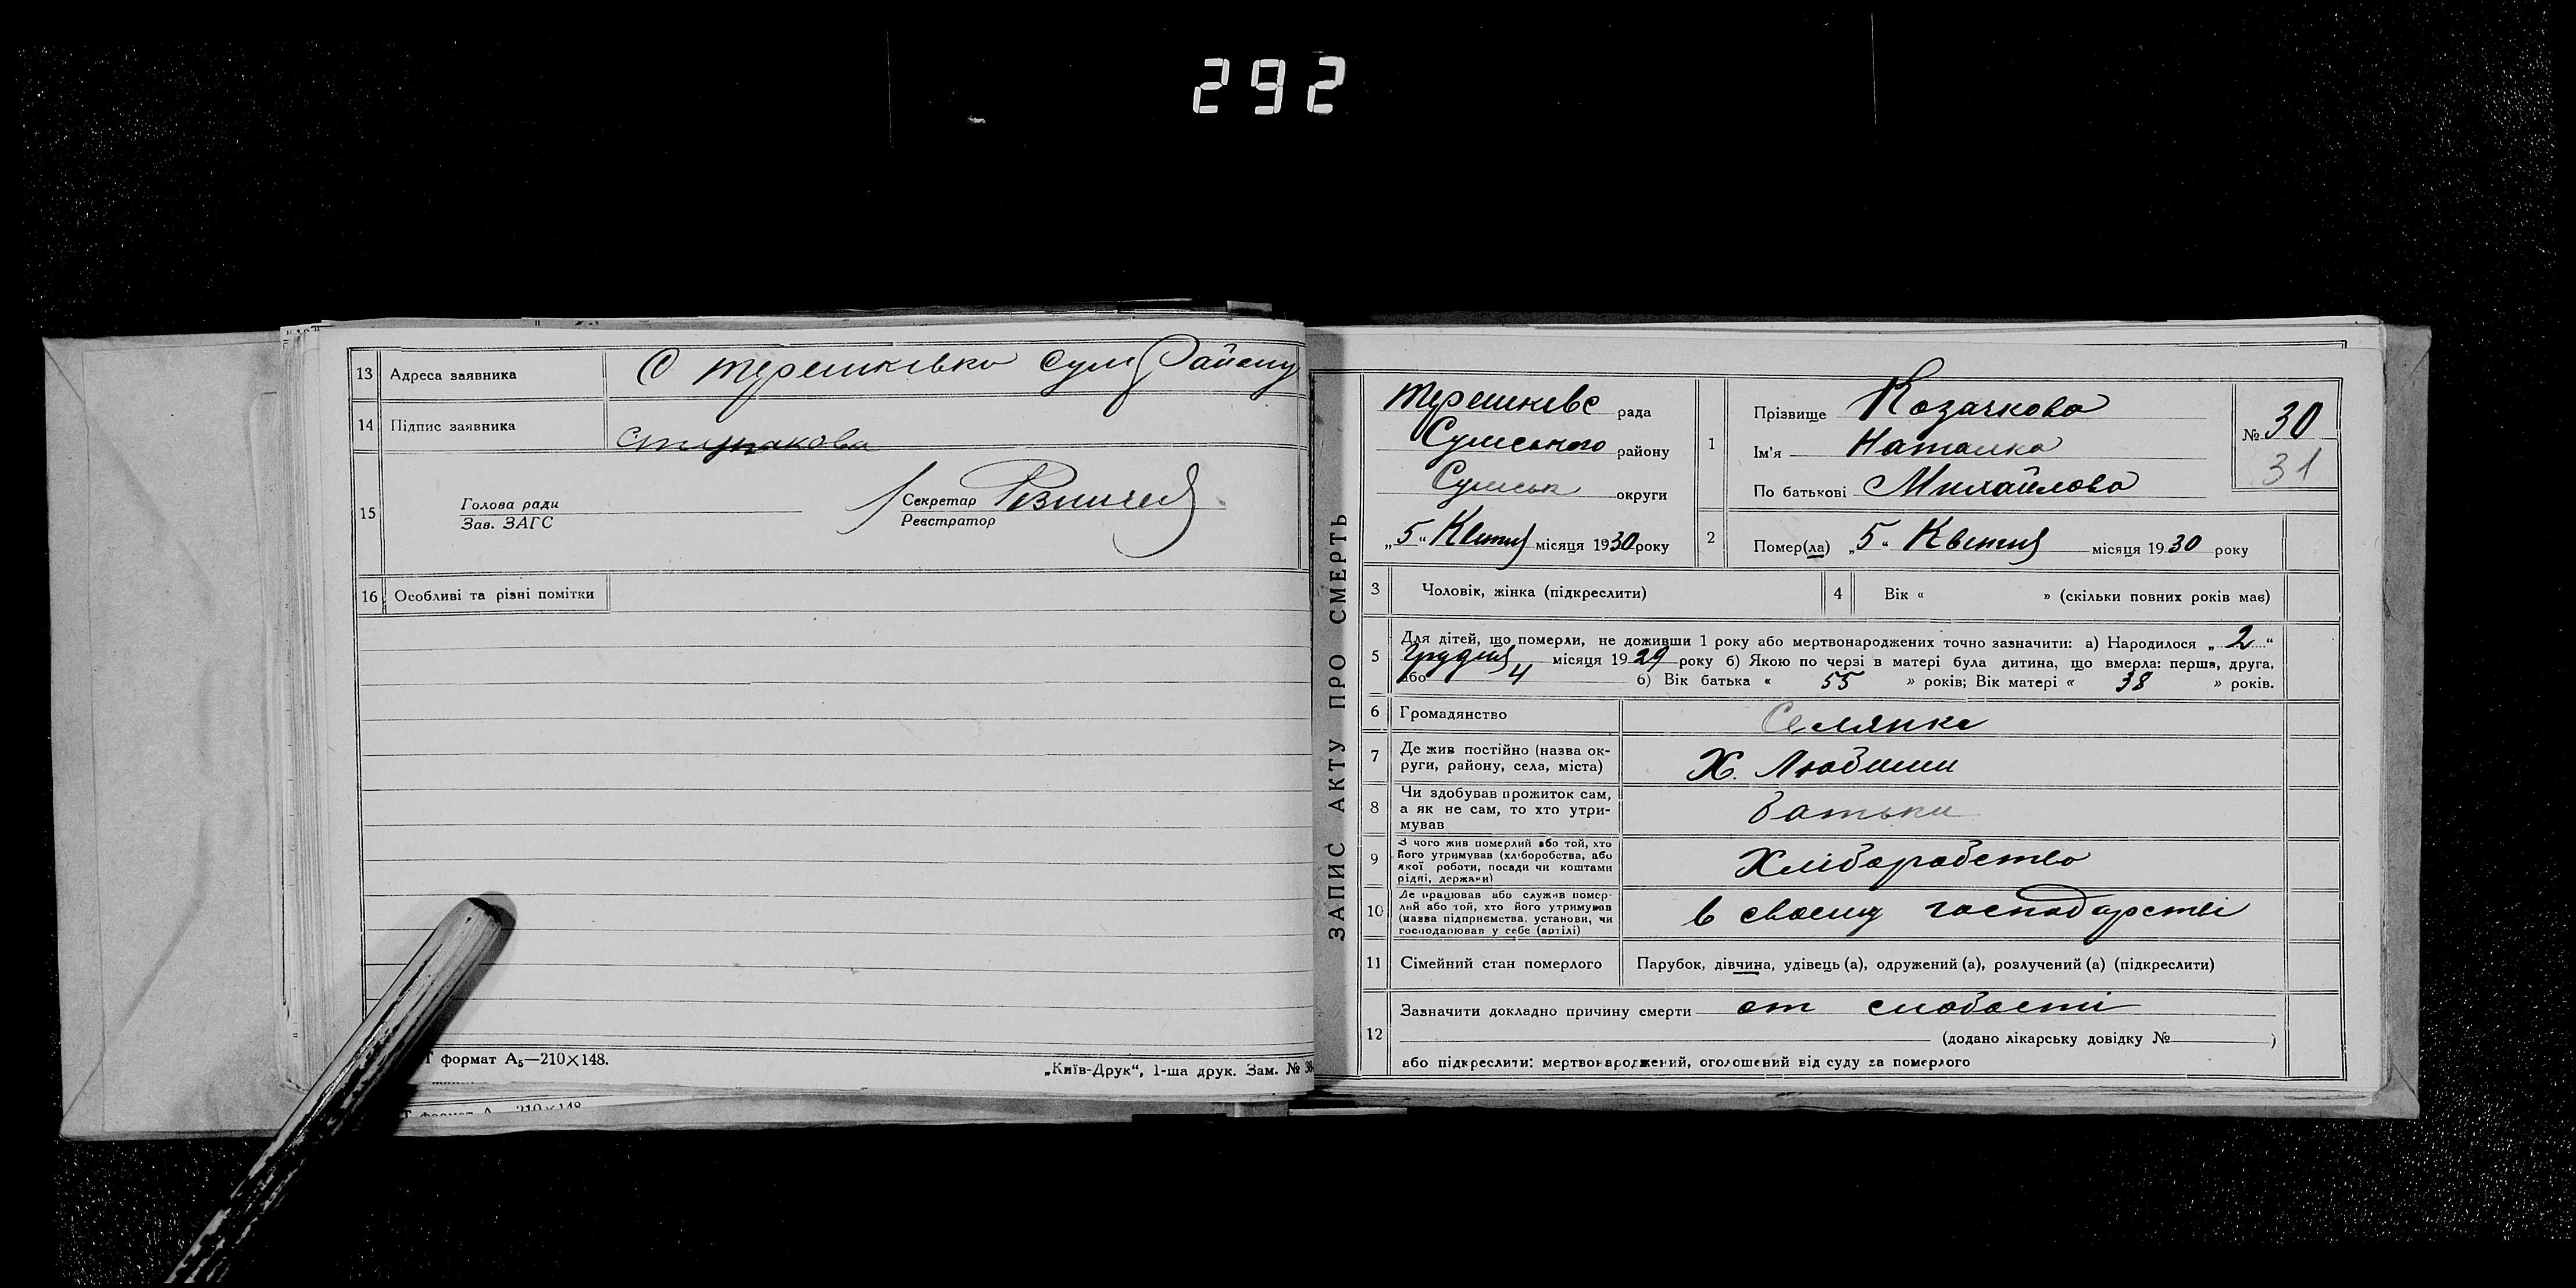 292
13 Адреса заявника С Терешківка Сум Району
14 Підпис заявника Ступакова
15 Голова ради
Зав. ЗАГС
Секретар
Реєстратор
16 Особливі та різні помітки
Т формат А5—210×148.
„Київ-Друк“, 1-ша друк. Зам. № 38
Т формат А 210×148
ЗАПИС АКТУ ПРО СМЕРТЬ
Терешківс рада
Сумського району
Сумськ округи
„5“ Квітня місяця 1930 року
1 Прізвище Козачкова
Ім'я Наталка
По батькові Михайлова
№ 30
31
2 Помер(ла) „5“ Квітня місяця 1930 року
3 Чоловік, жінка (підкреслити)
4 Вік « » (скільки повних років має)
5 Для дітей, що померли, не доживши 1 року або мертвонароджених точно зазначити: а) Народилося „2“
Грудня місяця 1929 року б) Якою по черзі в матері була дитина, що вмерла: перша, друга,
або 4 б) Вік батька « 55 » років; Вік матері « 38 » років.
6 Громадянство Селянка
7 Де жив постійно (назва ок-
руги, району, села, міста) Х.
8 Чи здобував прожиток сам,
а як не сам, то хто утри-
мував батьки
9 З чого жив померлий або той, хто
його утримував (хліборобства, або
якої роботи, посади чи коштами
рідні, держави) Хліборобство
10 Де працював або служив помер-
лий або той, хто його утримував
(назва підприємства, установи, чи
господарював у себе (артілі) в своєму господарстві
11 Сімейний стан померлого Парубок, дівчина, удівець (а), одружений (а), розлучений (а) (підкреслити)
12 Зазначити докладно причину смерти от слабості
(додано лікарську довідку № )
або підкреслити: мертвонароджений, оголошений від суду за померлого